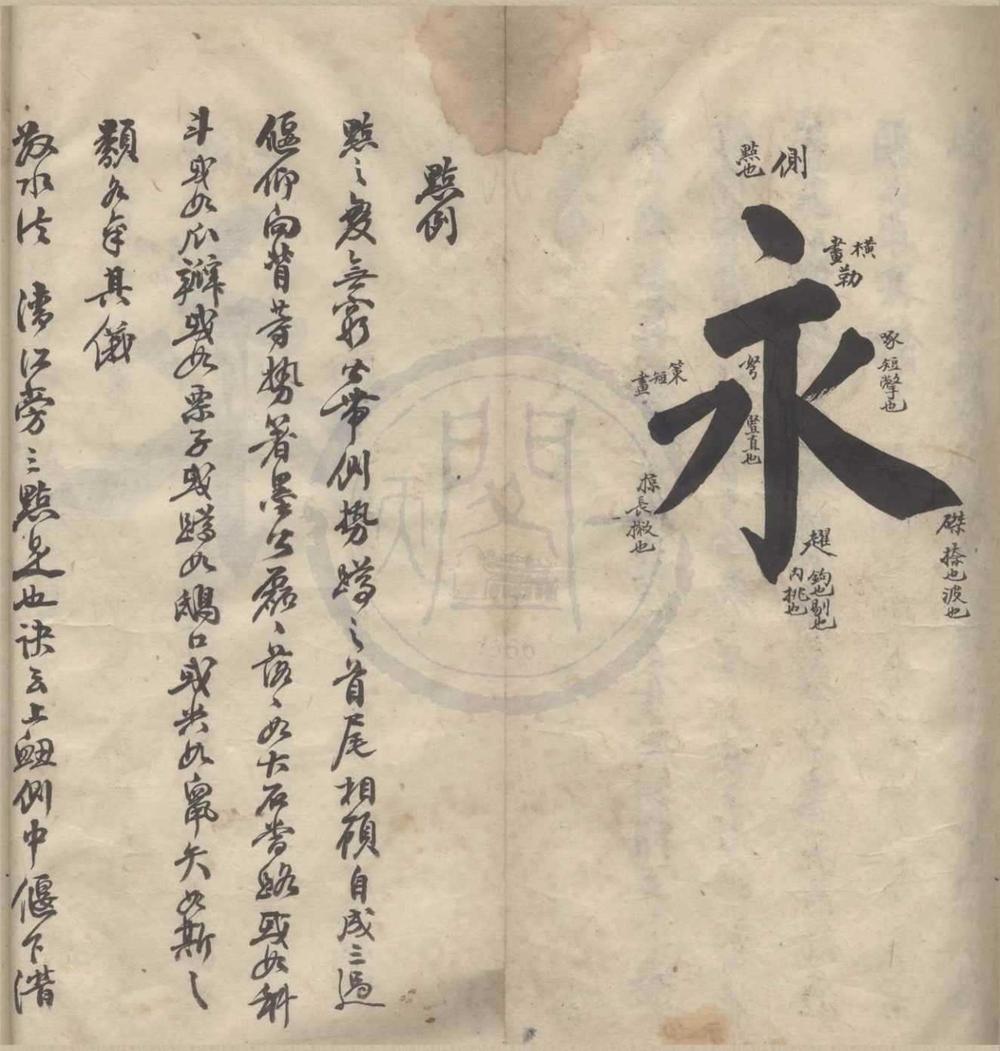 側
點也
永
橫
畫
勒
啄短撇也
策短畫
弩
豎直也
掠長撇也
趯鉤也剔也
內挑也
磔捺也波也
點側
點之變無窮必帶側勢蹲之首尾相顧自成三過
偃仰向背等勢著墨必磊磊落落如大石當路或如科
斗或如瓜瓣或如栗子或蹲如鴟口或尖如鼠矢如斯之
類各禀其儀
散水法 潘江旁三點是也訣云上衄側中偃下潛